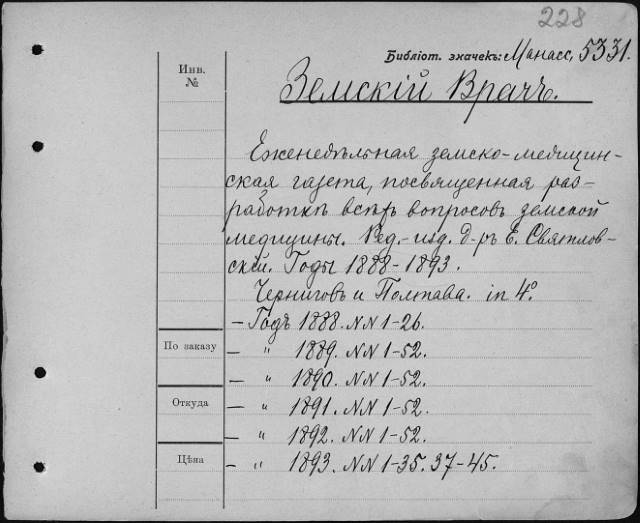 228
Библіот. значекъ: Манасс. 5331.
Инв.
№
Земскій Врачъ.
Еженедѣльная земско-медицин-
ская газета, посвященная раз-
работкѣ всѣхъ вопросовъ земской
медицины. Ред.-изд. д-ръ Е. Святлов-
скій. Годы 1888-1893.
Черниговъ и Полтава. in 4°.
- Годъ 1888. NN 1-26.
По заказу
- " 1889. NN 1-52.
- " 1890. NN 1-52.
Откуда
- " 1891. NN 1-52.
- " 1892. NN 1-52.
Цѣна
- " 1893. NN 1-35. 37-45.